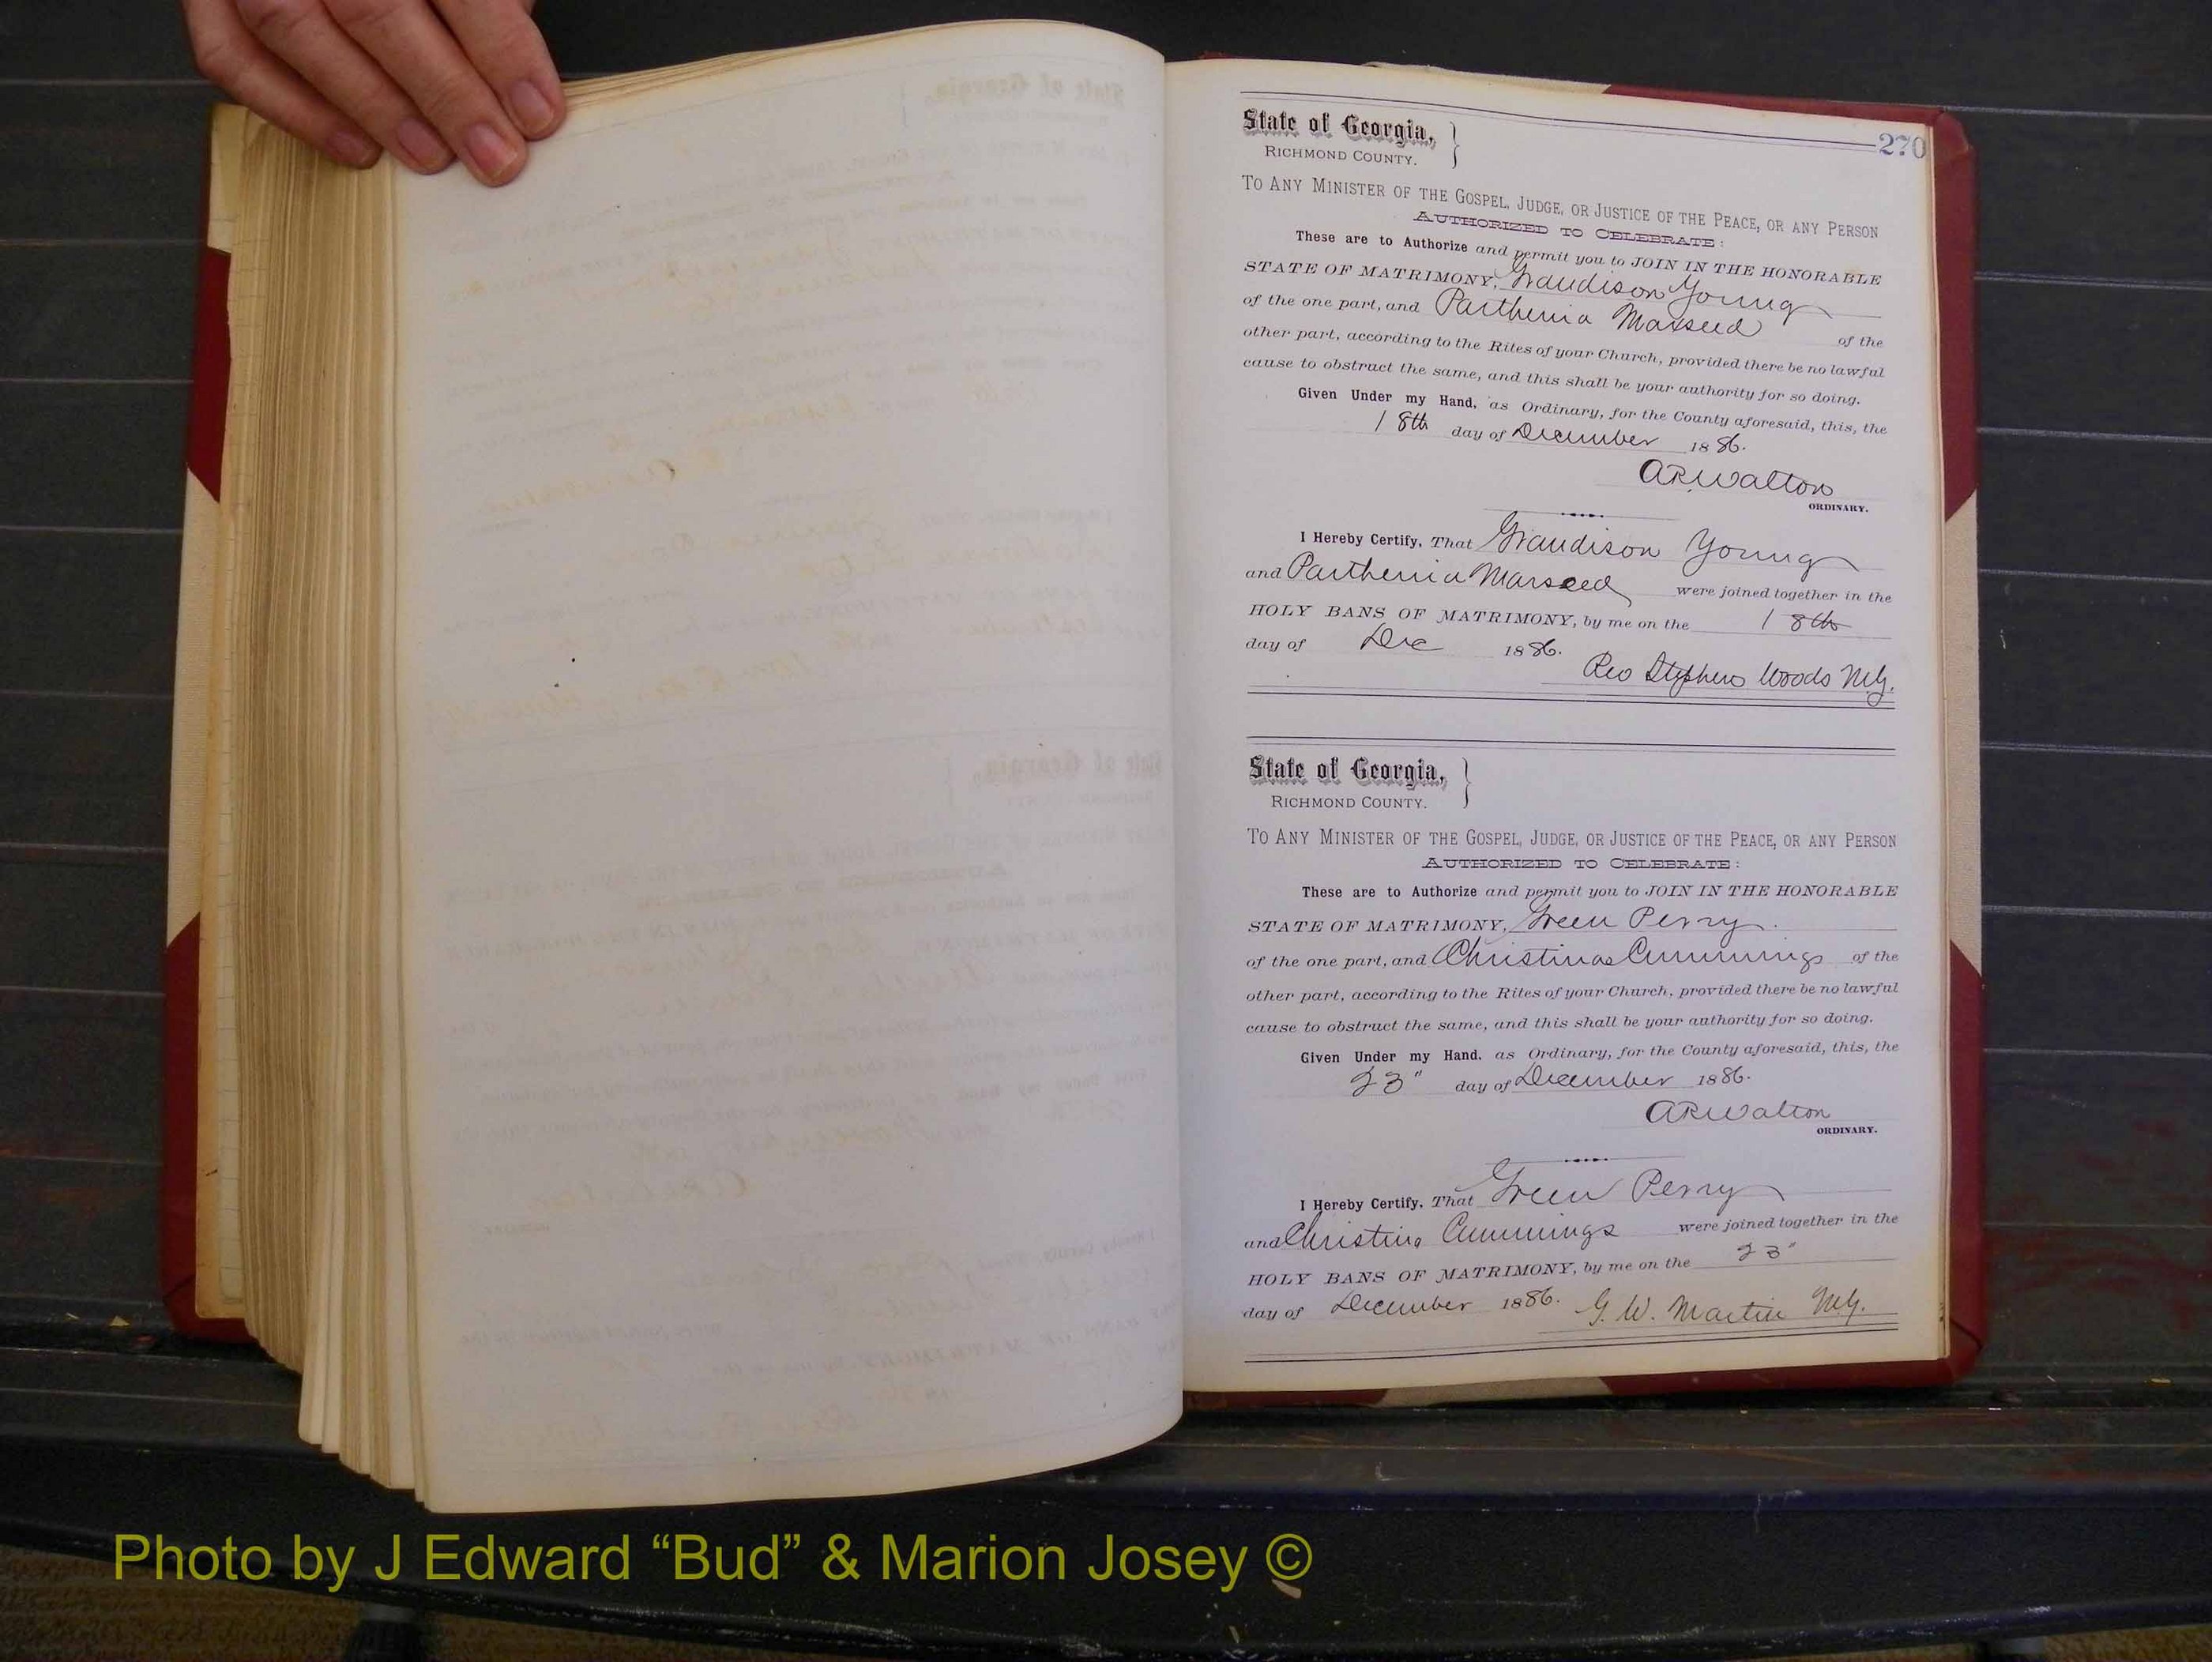 270
State of Georgia, }
RICHMOND COUNTY.
TO ANY MINISTER OF THE GOSPEL, JUDGE, OR JUSTICE OF THE PEACE, OR ANY PERSON
AUTHORIZED TO CELEBRATE:
These are to Authorize and permit you to JOIN IN THE HONORABLE
STATE OF MATRIMONY, Grandison Young
of the one part, and Parthenia Marseed of the
other part, according to the Rites of your Church, provided there be no lawful
cause to obstruct the same, and this shall be your authority for so doing.
Given Under my Hand, as Ordinary, for the County aforesaid, this, the
18th day of December 1886.
A R Walton
ORDINARY.
I Hereby Certify, That Grandison Young
and Parthenia Marseed were joined together in the
HOLY BANS OF MATRIMONY, by me on the 18th
day of Dec 1886.
Rev Stephens Woods M.G.
State of Georgia, }
RICHMOND COUNTY.
TO ANY MINISTER OF THE GOSPEL, JUDGE, OR JUSTICE OF THE PEACE, OR ANY PERSON
AUTHORIZED TO CELEBRATE:
These are to Authorize and permit you to JOIN IN THE HONORABLE
STATE OF MATRIMONY, Green Perry.
of the one part, and Christina Cummings of the
other part, according to the Rites of your Church, provided there be no lawful
cause to obstruct the same, and this shall be your authority for so doing.
Given Under my Hand, as Ordinary, for the County aforesaid, this, the
23" day of December 1886.
A R Walton
ORDINARY.
I Hereby Certify, That Green Perry
and Christina Cummings were joined together in the
HOLY BANS OF MATRIMONY, by me on the 23"
day of December 1886. G. W. Martin M.G.
Photo by J Edward “Bud” & Marion Josey ©